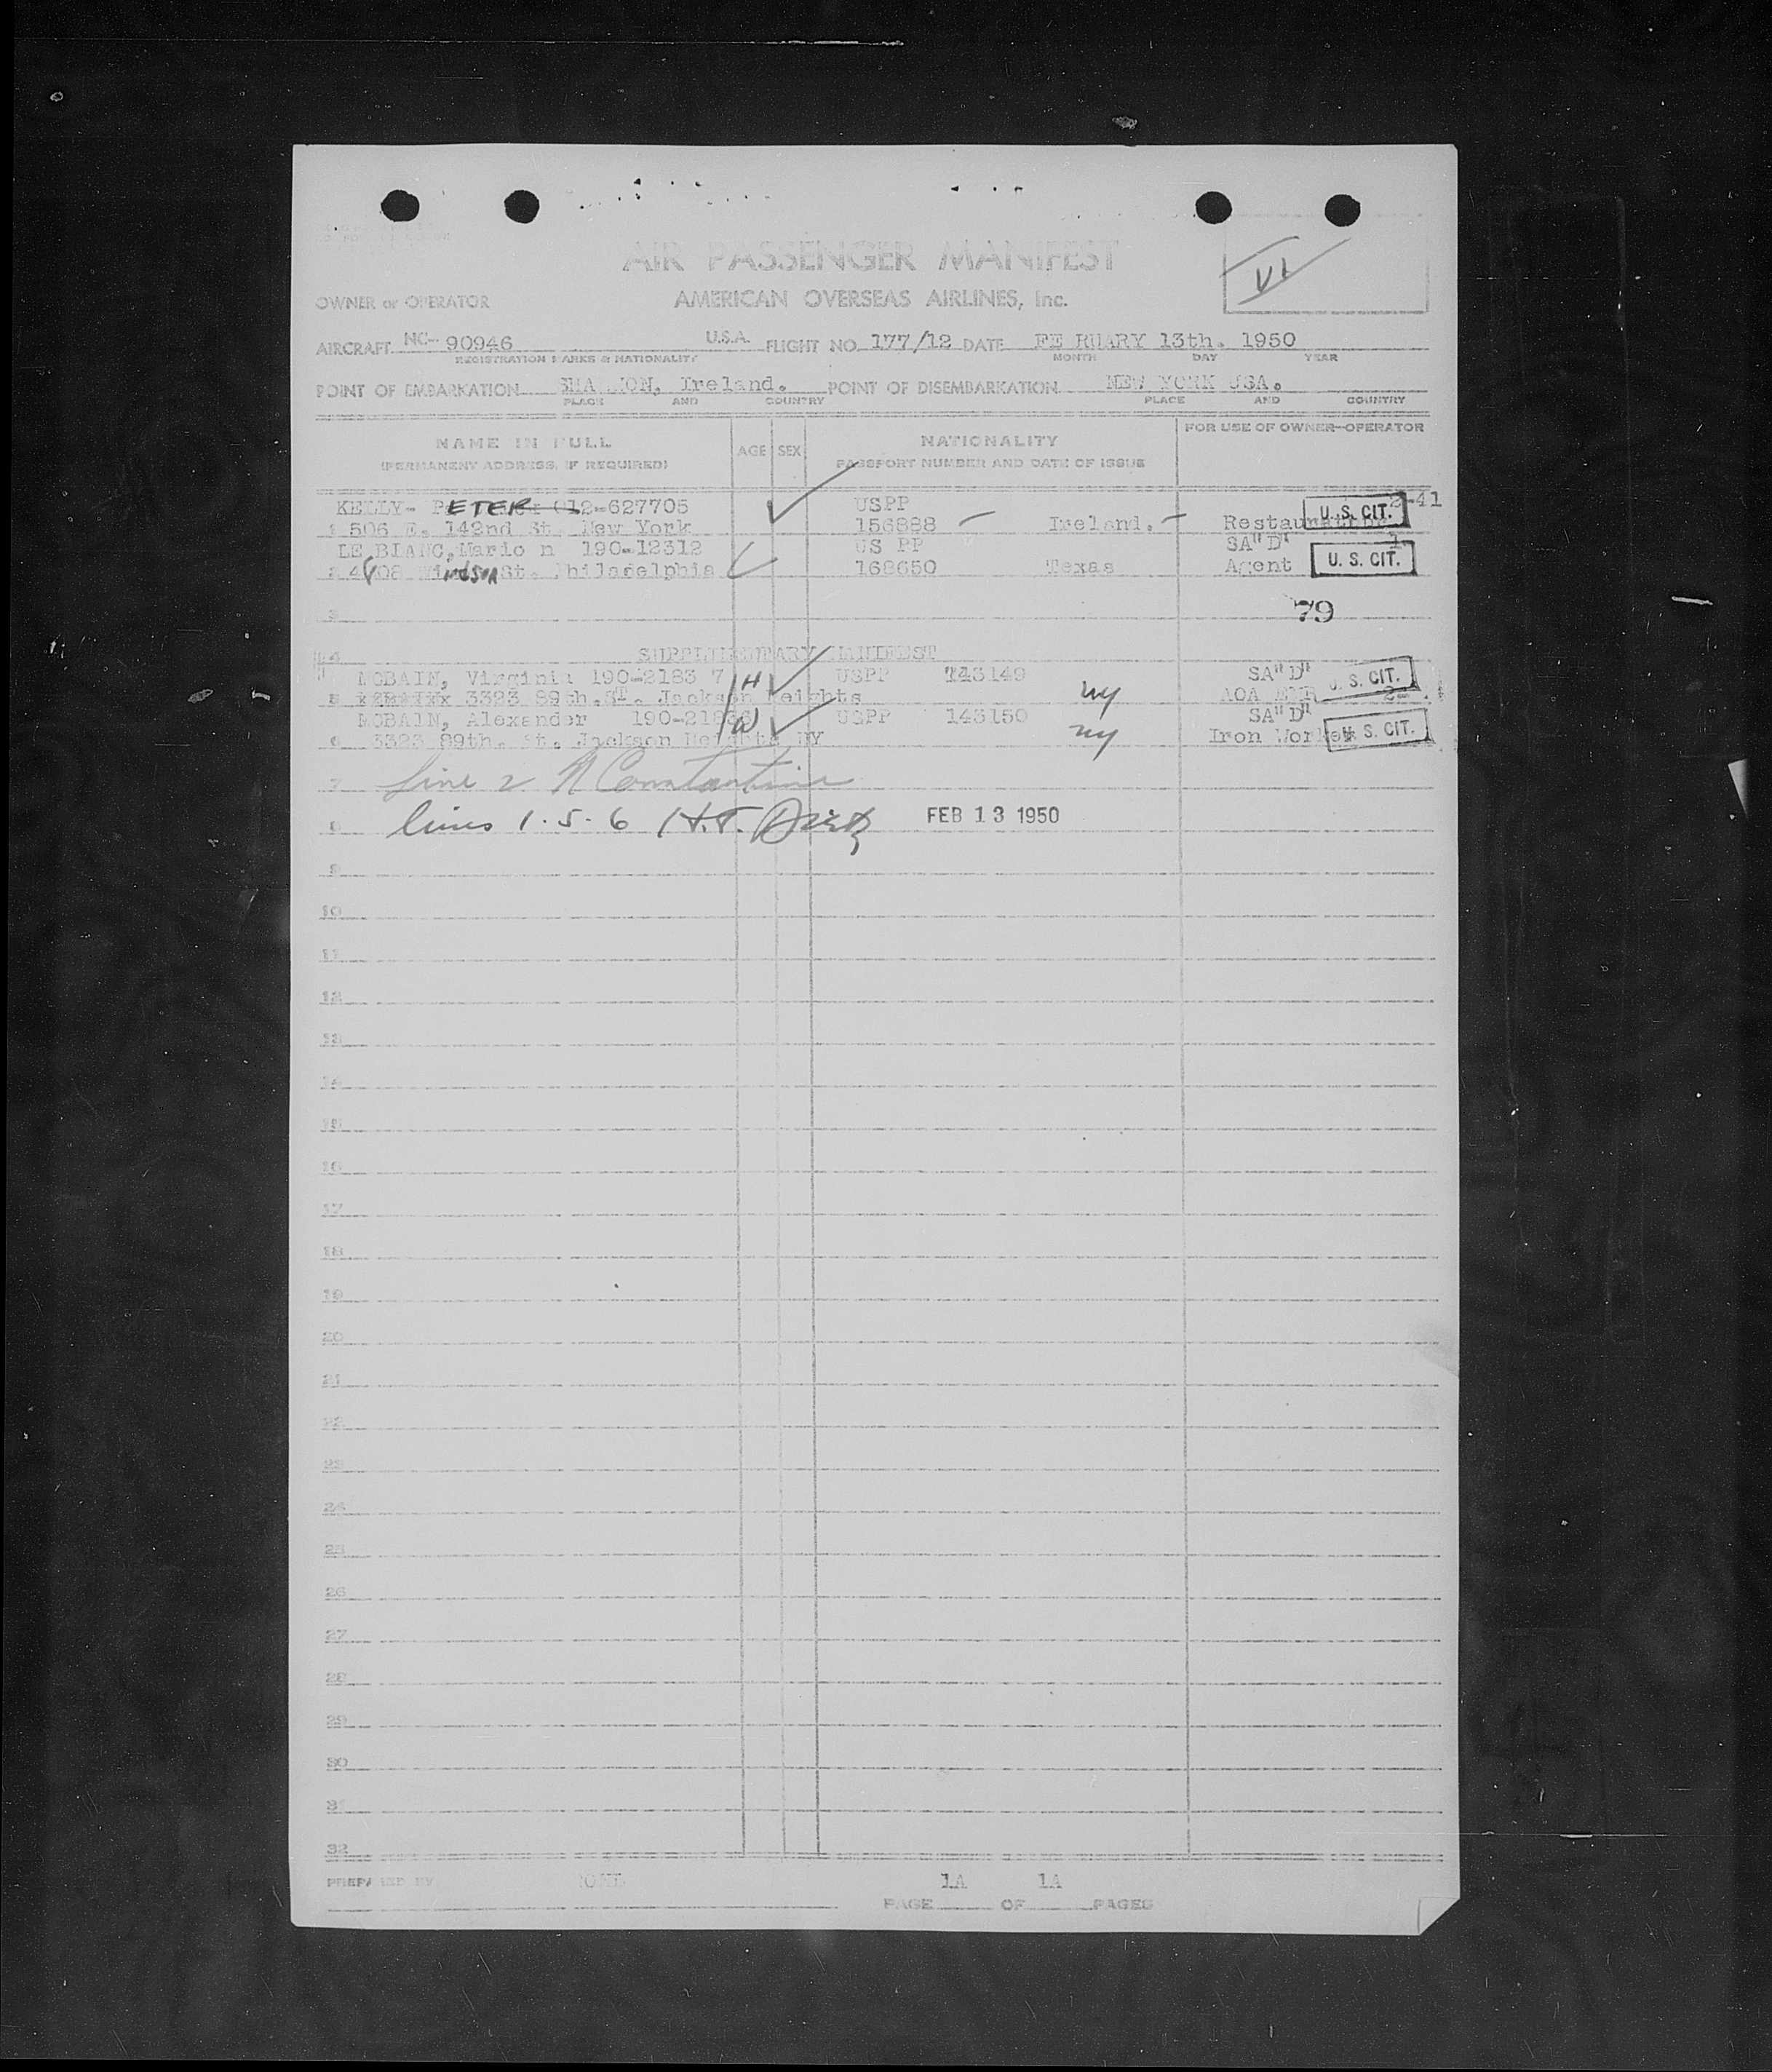 AIR PASSENGER MANIFEST
VI
OWNER or OPERATOR AMERICAN OVERSEAS AIRLINES, Inc.
AIRCRAFT NC- 90946 U.S.A. FLIGHT NO. 177/12 DATE FE RUARY 13th. 1950
REGISTRATION MARKS & NATIONALITY MONTH DAY YEAR
POINT OF EMBARKATION SHA NON, Ireland. POINT OF DISEMBARKATION NEW YORK USA.
PLACE AND COUNTRY PLACE AND COUNTRY
NAME IN FULL AGE SEX NATIONALITY FOR USE OF OWNER-OPERATOR
(PERMANENT ADDRESS, IF REQUIRED) PASSPORT NUMBER AND DATE OF ISSUE
KELLY- PETER 012-627705 USPP 2-41
1 506 E. 142nd St. New York 156888 Ireland. U. S. CIT.
LE BLANC, Mario n 190-12312 US PP SA"D" 1
2 Windson St. Philadelphia 168650 Texas Agent U. S. CIT.
3 79
4 SUPPLIMENTARY MANIFEST
MCBAIN, Virginia 190-2183 7 H USPP 143149 SA"D" U. S. CIT.
5 3323 89th.ST. Jackson Heights ny AOA
MCBAIN, Alexander 190-21836 W USPP 143150 SA"D"
6 3323 89th. St. Jackson Heights NY ny Iron Worker U. S. CIT.
7 Line 2 N Constantine
8 lines 1.5.6 H.T. FEB 13 1950
9
10
11
12
13
14
15
16
17
18
19
20
21
22
23
24
25
26
27
28
29
30
31
32
PREPARED BY 1A 1A
PAGE OF PAGES